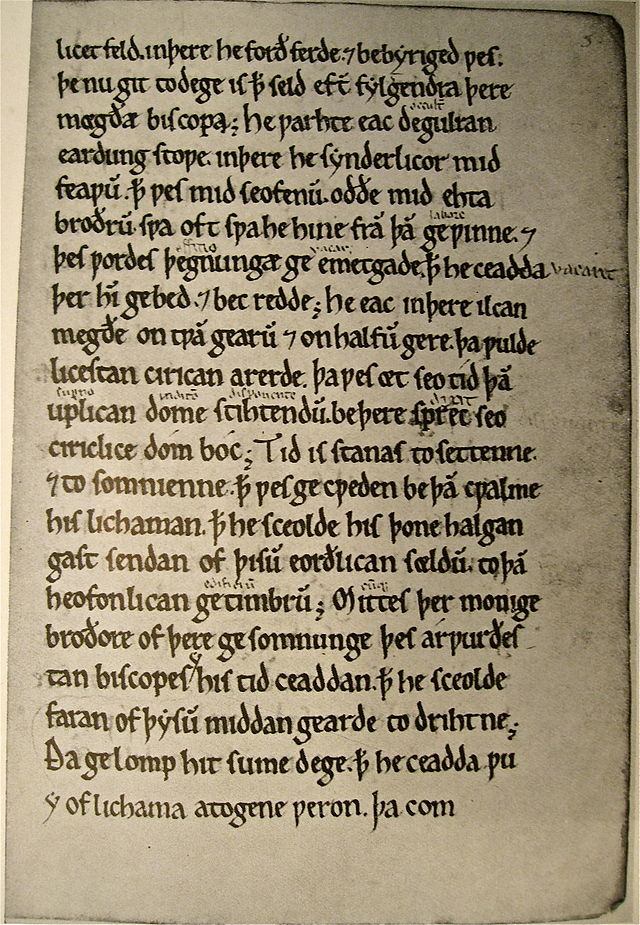 licet feld. inþere he forð ferde. ⁊ bebyriged ƿes.
þe nu git to dege is ꝥ seld eft fylgendra þere
occult
mægðæ biscopa; he ƿarhte eac degulran
eardung stoƿe. inþere he synderlicor mid
feaƿū. ꝥ ƿes mid seofenū. oððe mid ehta
labore
broðrū. sƿa oft sƿa he hine frā þā geƿinne. ⁊
officio vacavit
þes ƿordes þegnungæ ge emetgade. ꝥ he ceadda vacavit
þer hī gebed. ⁊ bec redde; he eac inþere ilcan
megðe on tƿā gearū ⁊ on halfū gere. þa ƿulde
licestan cirican arerde. þa ƿes æt seo tid þā
disponente
uplican dome stihtendū. be þere sprec seo
ciriclice dom boc; Tid is stanas to settenne.
⁊ to somnienne. ꝥ ƿes ge cƿeden be þā cƿalme
his lichaman. ꝥ he sceolde his þone halgan
gast sendan of þisū eorðlican sældū. to þā
edificiū
heofonlican getimbrū; Mittes þer monige
broðore of þere ge somnunge þes arƿurðes
tan biscopes his tid ceaddan. ꝥ he sceolde
faran of þysū middan gearde to drihtne;
Ða gelomp hit sume dege. ꝥ he ceadda ƿu
of lichama atogene ƿeron. þa com